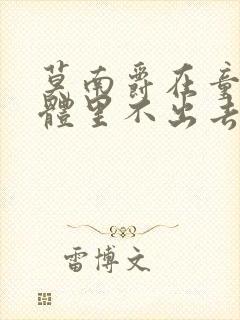 莫南爵在童
體里不出去
雷博文